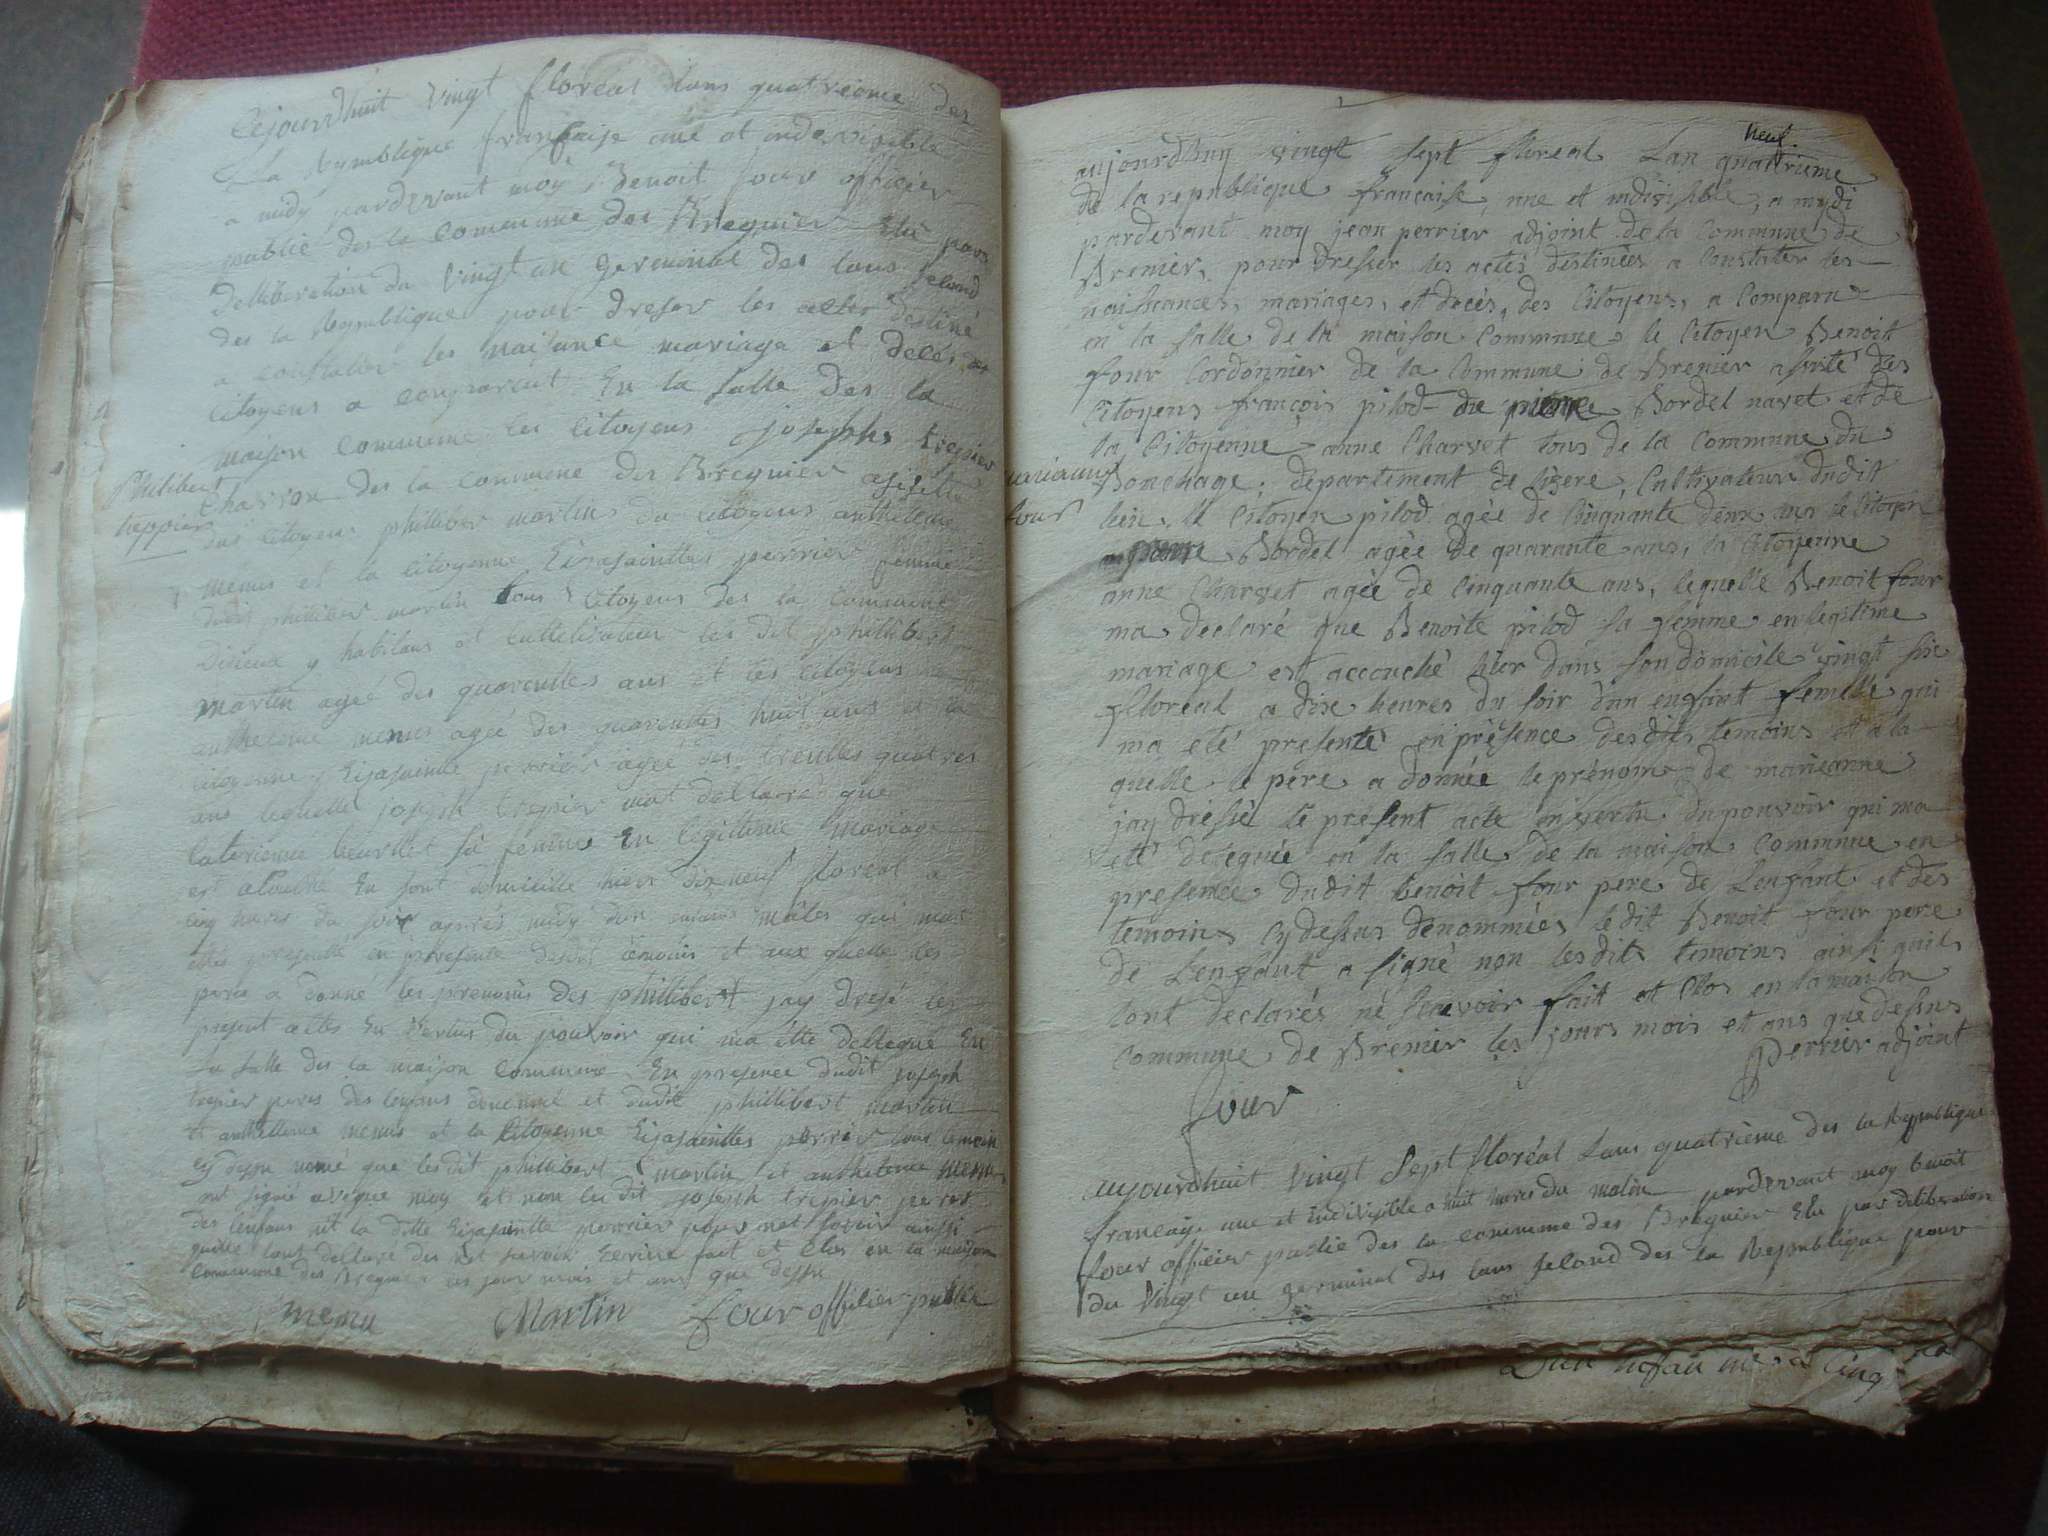 Cejourdhuit vingt floreal lans quatrieme des
La Republique francaise une et indivisible
a midy pardevant moy Benoit four officier
publie des la commune des Bregnier Elu pars
delliberation du vingt un germinal des lans second
des la Republique pour dreser les actes destiné
a constater les naisance mariage et deces des
Citoyens a comparut En la salle des la
maison commune les Citoyens josephs trepier
Philibert
treppier
Charron des la commune des Bregnier asisté
des Citoyens philliber martin du citoyens anthelme
menus et la citoyenne perrier femme
dudit philliber martin tous Citoyens des la commune
y habitans et cultivateur les dit phillibert
martin ageé des quarentes ans et les citoyens
anthelme menus ageé des quarentes huit ans et la
citoyenne perrier ageé des trentes quatres
ans lequelle joseph trepier mat dellaré que
laterienne sa femme En legitime mariage
est acouché En sont domicille hier dix neuf floreal a
cinq heures du soir apprés midy dun enfans mâles qui mat
etté presenté en presente desdit témoin et aux quelle les
pere a donne les prenoms des phillibert jay dresé les
present actes En vertus du pouvoir qui ma étté dellegué En
la salle des la maison commune En presence dudit joseph
trepier peres des lenfans denommé et dudit phillibert martin
et anthellme menus et la Citoyenne perrier tous temoin
cy desu nomé que lesdit phillibert martin et anthelme menus
ont signé aveque moy et non les dit joseph trepier peres
des lenfans nit la ditte perrier pour net savoir ainssi
quille lont dellare des net savoir Ecrire fait et clos en la maison
commune des Bregnier les jour mois et ans que desu
menu Martin four offisier publie
neuf.
aujourdhuy vingt sept floreal Lan quatrieme
de la republique française, une et indivisible, a mydi
pardevant moy jean perrier adjoint de la Commune de
Brenier, pour dresser les actes destinées a Constater les
naissances, mariages, et decès, des Citoyens, a Comparu
en la salle de la maison Commune le Citoyen Benoit
four Cordonnier de la Commune de Brenier assisté des
Citoyens françois pilod du pierre Bordel navet et de
la Citoyenne anne Charvet tous de la Commune du
mariane
four
Bouchage, departement de lisere, Cultivateurs dudit
lieu, le Citoyen pilod agée de Cinquante deux ans le Citoyen
pierre Bordel agée de quarante ans, la Citoyenne
anne Charvet agée de Cinquante ans, lequelle Benoit four
ma declaré que Benoite pilod sa femme en legitime
mariage est accouché hier dans son domicile vingt six
floreal a dixe heures du soir dun enfant femelle qui
ma eté presenté en présence desdits temoins et a la
quelle le père a donnée le prénom de marieanne
jay dréssé le présent acte en vertu du pouvoir qui ma
eté deleguée en la salle de la maison Commune en
presence dudit benoit four pere de Lenfant et des
temoins Cydessus dénommées ledit Benoit four pere
de Lenfant a signé non lesdits temoins ainsi quils
lont declarés né scavoir fait et Clos en la maison
Commune de Brenier les jours mois et ans que dessus
Perrier adjoint
four
aujourdhuit vingt sept floréal Lans quatrième des la Republique
francaise une et indivisible a huit heures du matin pardevant moy benoit
four officier publie des la commune des Bregnier Elu par deliberation
du vingt un germinal des lans second des la Republique pour